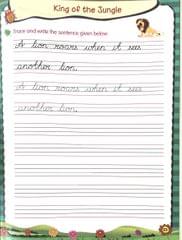 King of the Jungle
Trace and write the sentence given below
A lion roars when it sees
another lion.
A lion roars when it sees
another lion.